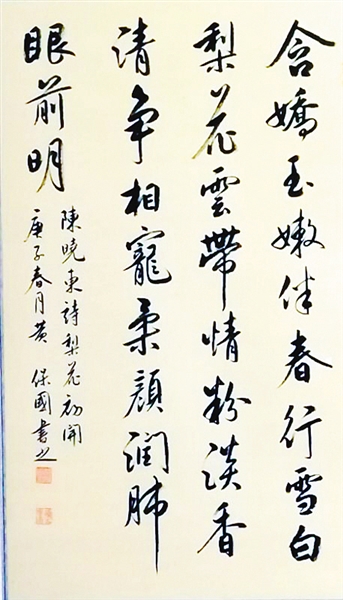 含嬌玉嫩伴春行雪白
梨花雲帶情粉淡香
清争相寵柔顔润肺
眼前明
陳曉東詩梨花初開
庚子春月黄保國書之